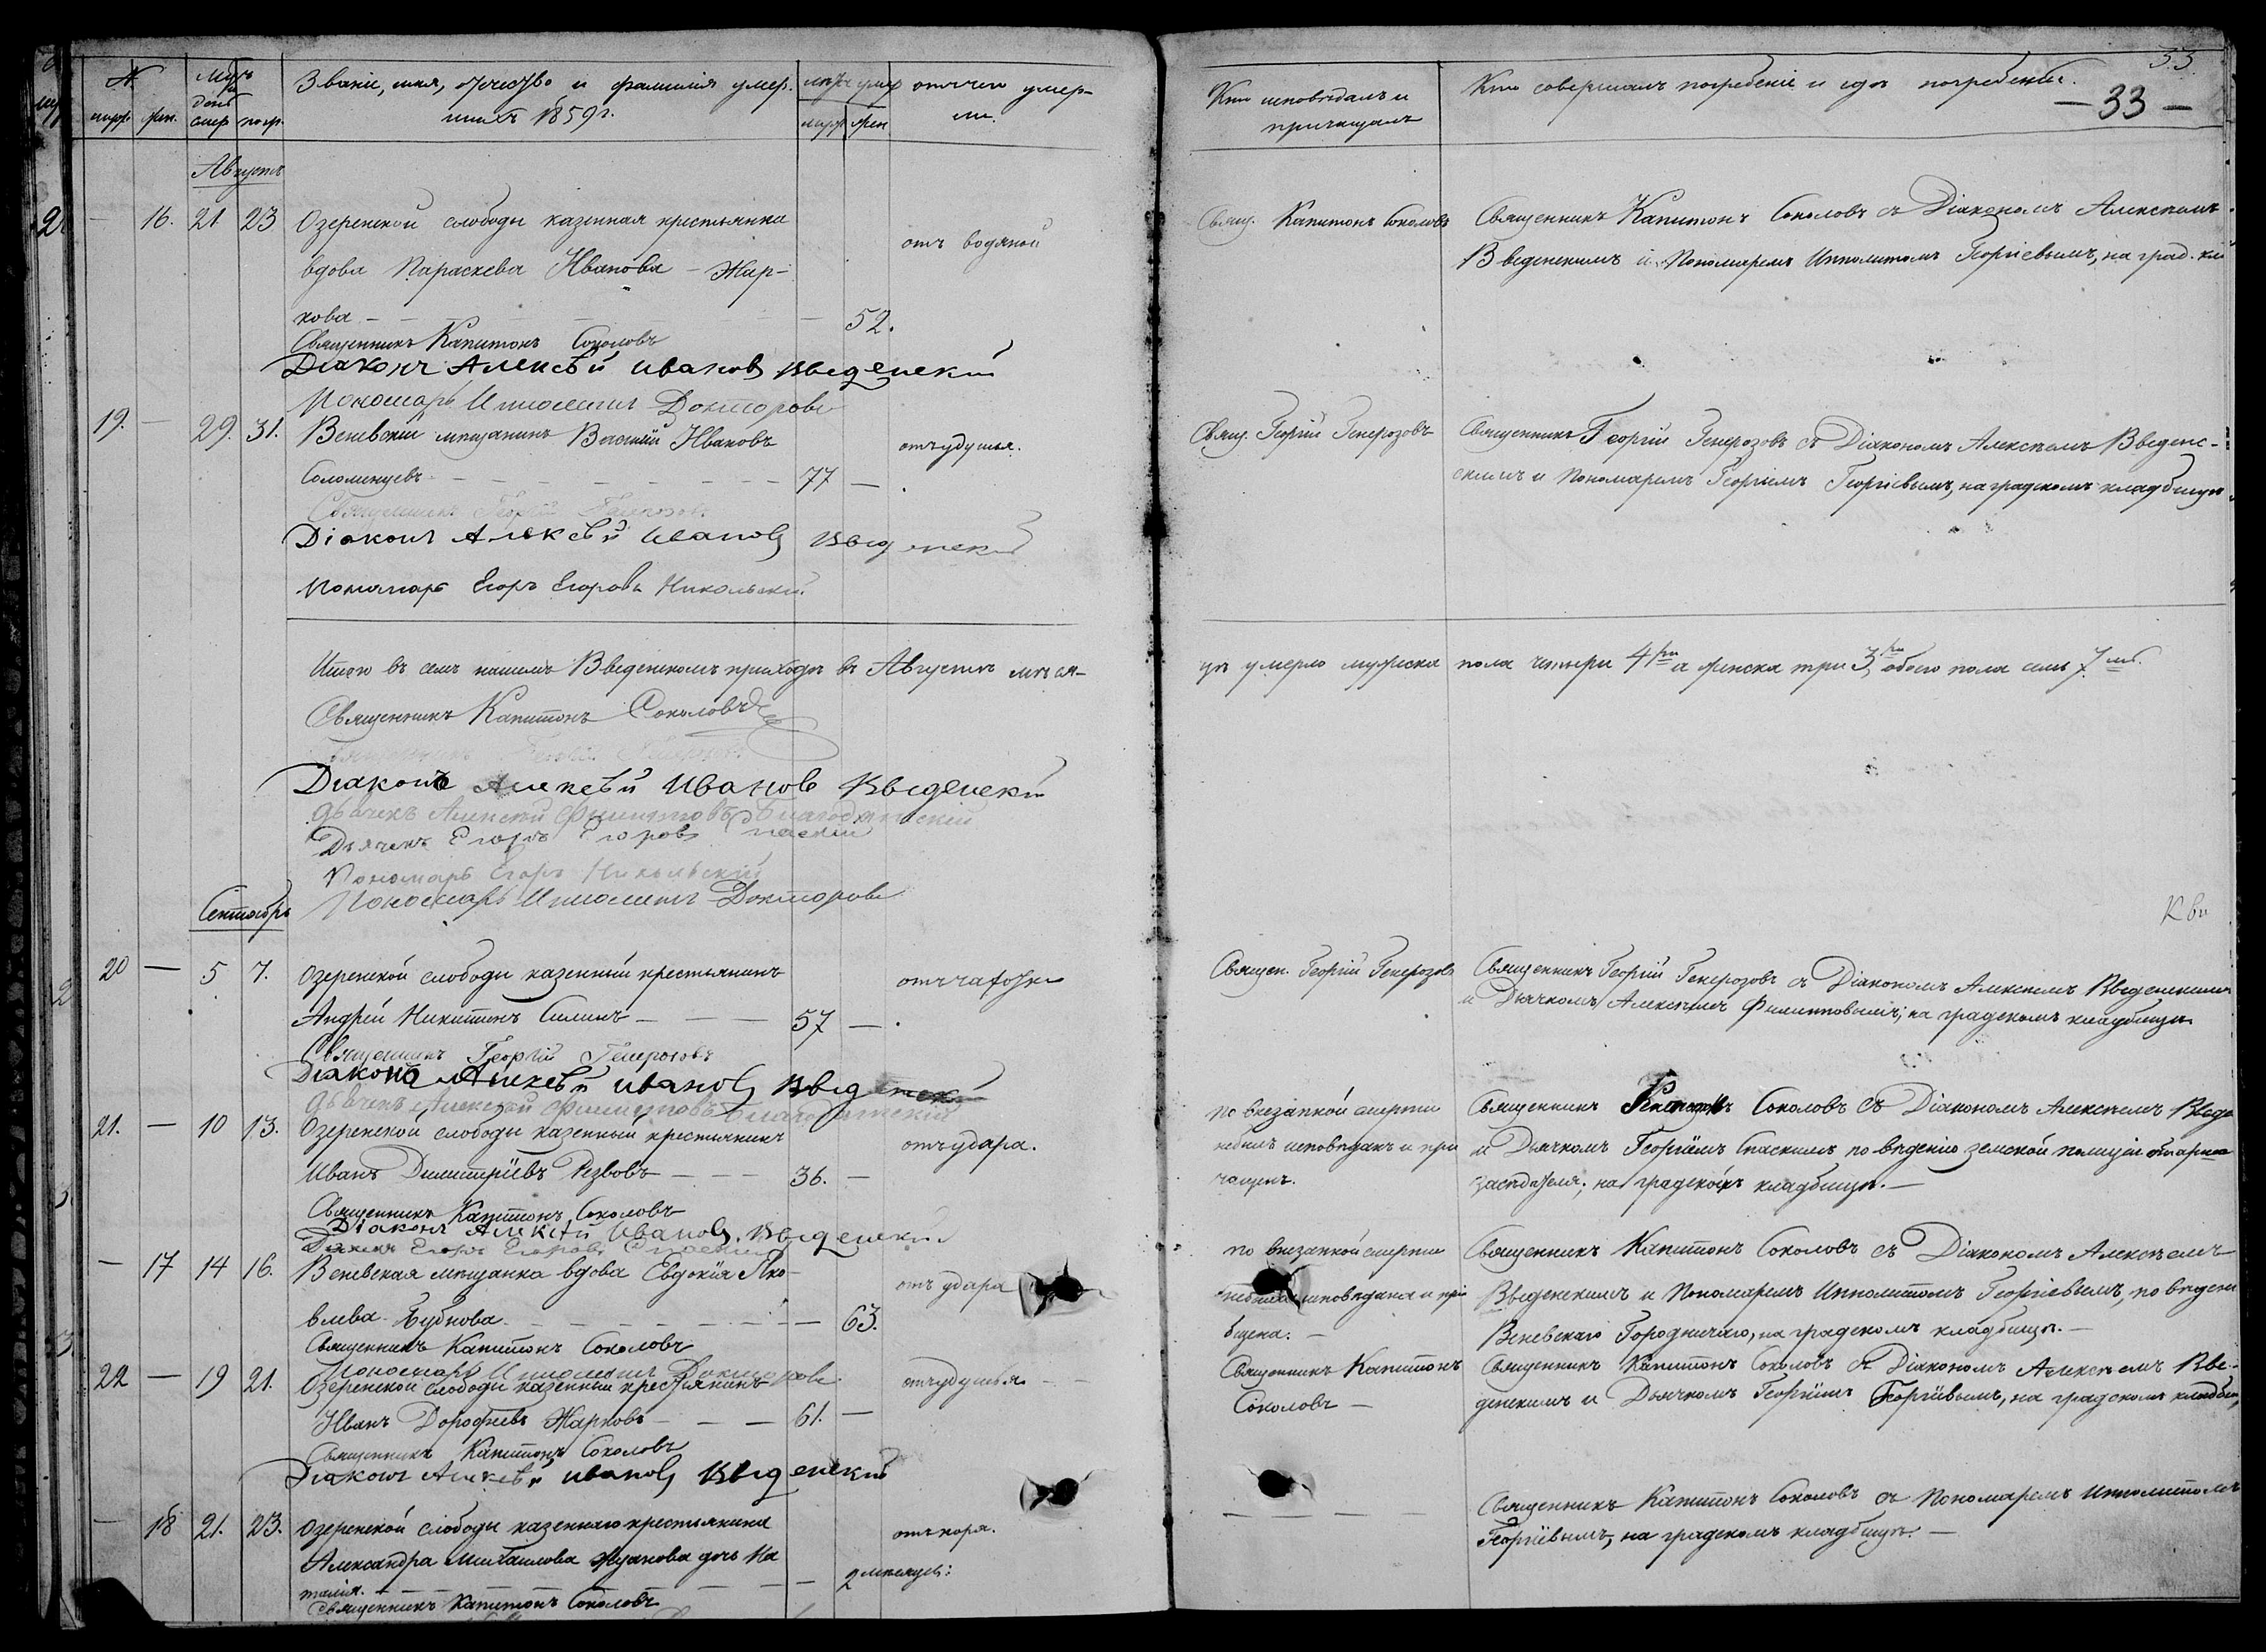 33
— 33 —
№ Мц̃ъ и день Званіе, имя, отчество и фамилія умер- лѣта умер отъ чего умер-
муж. жен. смер погр. шихъ 1859 г. муж жен. ли.
Кто исповѣдалъ и причащалъ
Кто совершалъ погребеніе и гдѣ погребены.
Августъ
— 16. 21 23 Озеренской слободы казенная крестьянка
вдова Параскева Иванова Жар-
кова — — 52. отъ водяной
Свящ. Капитонъ Соколовъ
Священникъ Капитонъ Соколовъ съ Діакономъ Алексѣемъ
Введенскимъ и Пономаремъ Ипполитомъ Георгіевымъ, на град. кл
Священникъ Капитонъ Соколовъ
Діаконъ Алексѣй Ивановъ Введенскій
Пономарь Ипполитъ Докторовъ
19. — 29. 31. Веневскій мѣщанинъ Василій Ивановъ
Соломенцевъ — 77 — отъ удушья.
Свящ. Георгій Генерозовъ
Священникъ Георгій Генерозовъ съ Діакономъ Алексѣемъ Введенс-
скимъ и Пономаремъ Георгіемъ Георгіевымъ, на градскомъ кладбищѣ
Священникъ Георгій Генерозовъ
Діаконъ Алексѣй Ивановъ Введенскій
Пономарь Егоръ Егоровъ Никольскій
Итого въ семъ нашемъ Введенскомъ приходѣ въ Августѣ мѣся-
цѣ умерло мужеска пола четыри 4ри а женска три 3ри обоего пола семь 7мь.
Священникъ Капитонъ Соколовъ
Священникъ Георгій Генерозовъ
Діаконъ Алексѣй Ивановъ Введенскій
Дьячекъ Алексѣй Филипповъ Благовѣщенскій
Дьячекъ Егоръ Егоровъ Спаскій
Пономарь Егоръ Никольскій
Пономарь Ипполитъ Докторовъ
Сентябрь
20 — 5 7. Озеренской слободы казенный крестьянинъ
Андрей Никитинъ Силинъ — — — 57 — отъ чахотки
Священ. Георгій Генерозовъ
Священникъ Георгій Генерозовъ съ Діакономъ Алексѣемъ Введенскимъ
и Дьячкомъ Алексѣемъ Филипповымъ; на градскомъ кладбищѣ
Священникъ Георгій Генерозовъ
Діаконъ Алексѣй Ивановъ Введенскій
Дьячекъ Алексѣй Филипповъ Благовѣщенскій
21. — 10 13. Озеренской слободы казенный крестьянинъ
Иванъ Димитріевъ Рѣзвовъ — — 36. — отъ удара.
По внезапной смерти
небылъ исповѣданъ и при
чащенъ.
Священникъ Капитонъ Соколовъ съ Діакономъ Алексѣемъ Введе
и Дьячкомъ Георгіемъ Спаскимъ по вѣденію земской полиціи
засѣдателя; на градскомъ кладбищѣ. —
Священникъ Капитонъ Соколовъ
Діаконъ Алексѣй Ивановъ Введенскій
Дьячекъ Егоръ Егоровъ Спаскій
— 17 14 16. Веневская мѣщанка вдова Евдокія Яко-
влева Бубнова — — 63. отъ удара
По внезапной смерти
небыла исповѣдана и пріо
бщена. —
Священникъ Капитонъ Соколовъ съ Діакономъ Алексѣемъ
Введенскимъ и Пономаремъ Ипполитомъ Георгіевымъ, по вѣдени
Веневскаго Городничаго, на градскомъ кладбищѣ. —
Священникъ Капитонъ Соколовъ
Пономарь Ипполитъ Докторовъ
22 — 19 21. Озеренской слободы казенный крестьянинъ
Иванъ Дорофѣевъ Жарковъ — — — 61. — отъ удушья
Священникъ Капитонъ
Соколовъ —
Священникъ Капитонъ Соколовъ съ Діакономъ Алексѣемъ Вве-
денскимъ и Дьячкомъ Георгіемъ Георгіевымъ, на градскомъ кладби,
Священникъ Капитонъ Соколовъ
Діаконъ Алексѣй Ивановъ Введенскій
— 18 21. 23. Озеренской слободы казеннаго крестьянина
Александра Михайлова Жданова дочь На
талія. — — 2 мѣсяцовъ: отъ коря.
Священникъ Капитонъ Соколовъ съ Пономаремъ Ипполитомъ
Георгіевымъ, на градскомъ кладбищѣ. —
Священникъ Капитонъ Соколовъ